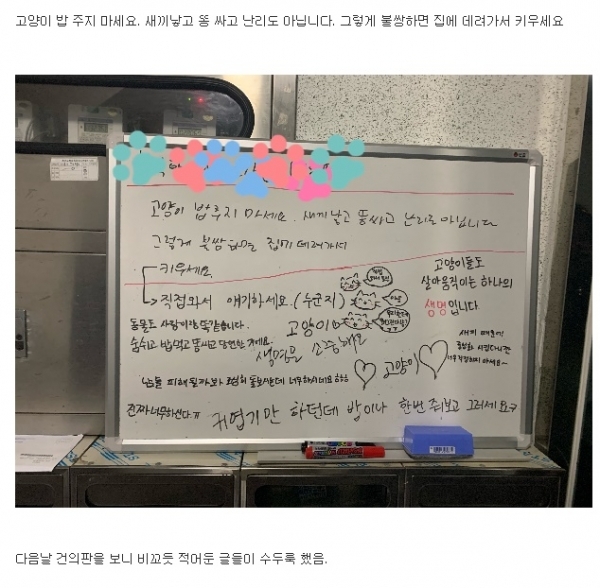 고양이 밥 주지 마세요. 새끼낳고 똥 싸고 난리도 아닙니다. 그렇게 불쌍하면 집에 데려가서 키우세요
고양이 밥주지 마세요. 새끼낳고 똥싸고 난리도 아닙니다
그렇게 불쌍하면 집에 데려가서
키우세요.
직접와서 얘기하세요. (누군지)
동물도 사람이랑 똑같습니다.
숨쉬고 밥먹고 똥싸고 당연한 거에요.
고양이
생명을 소중해요
고양이들도
살아움직이는 하나의
생명입니다.
고양이
남들 피해될까봐 열심히 돌보시는데 너무하시네요
진짜 너무하신다ㅠ
귀엽기만 하던데 밥이나 한번 줘보고 그러세요
다음날 건의판을 보니 비꼬듯 적어둔 글들이 수두룩 했음.